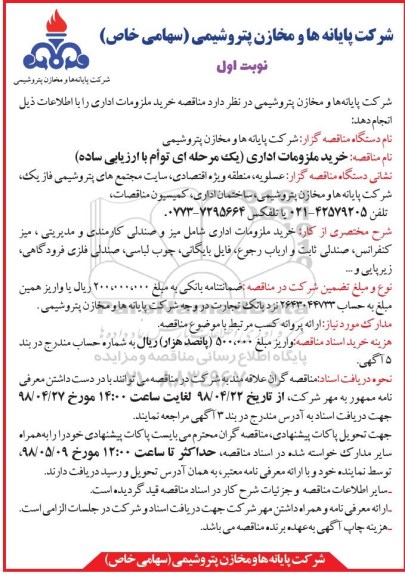 شرکت پایانه ها و مخازن پتروشیمی (سهامی خاص)
نوبت اول
شرکت پایانه‌ها و مخازن پتروشیمی
شرکت پایانه‌ها و مخازن پتروشیمی در نظر دارد مناقصه خرید ملزومات اداری را با اطلاعات ذیل
انجام دهد:
نام دستگاه مناقصه گزار: شرکت پایانه ها و مخازن پتروشیمی
نام مناقصه: خرید ملزومات اداری (یک مرحله ای توأم با ارزیابی ساده)
نشانی دستگاه مناقصه گزار: عسلویه، منطقه ویژه اقتصادی، سایت مجتمع های پتروشیمی فاز یک،
شرکت پایانه ها و مخازن پتروشیمی، ساختمان اداری، کمیسیون مناقصات،
تلفن ۴۲۵۷۹۲۰۵-۰۲۱ یا تلفکس ۷۲۹۵۶۶۴-۰۷۷۳.
شرح مختصری از کار: خرید ملزومات اداری شامل میز و صندلی کارمندی و مدیریتی ، میز
کنفرانس، صندلی ثابت و ارباب رجوع، فایل بایگانی، چوب لباسی، صندلی فلزی فرودگاهی،
زیرپایی و...
نوع و مبلغ تضمین شرکت در مناقصه: ضمانتنامه بانکی به مبلغ ۲۰۰،۰۰۰،۰۰۰ ریال یا واریز همین
مبلغ به حساب ۲۶۴۳۰۴۴۷۳۳ نزد بانک تجارت در وجه شرکت پایانه ها و مخازن پتروشیمی .
مدارک مورد نیاز: ارائه پروانه کسب مرتبط با موضوع مناقصه.
هزینه خرید اسناد مناقصه: واریز مبلغ ۵۰۰،۰۰۰ (پانصد هزار) ریال به شماره حساب مندرج در بند
۵ آگهی.
نحوه دریافت اسناد: مناقصه گران علاقه مند به شرکت در مناقصه می توانند با در دست داشتن معرفی
نامه ممهور به مهر شرکت، از تاریخ ۹۸/۰۴/۲۲ لغایت ساعت ۱۴:۰۰ مورخ ۹۸/۰۴/۲۷
جهت دریافت اسناد به آدرس مندرج در بند ۳ آگهی مراجعه نمایند.
جهت تحویل پاکات پیشنهادی، مناقصه گران محترم می بایست پاکات پیشنهادی خود را به همراه
سایر مدارک خواسته شده در اسناد مناقصه، حداکثر تا ساعت ۱۲:۰۰ مورخ ۹۸/۰۵/۰۹
توسط نماینده خود و با ارائه معرفی نامه معتبر، به همان آدرس تحویل و رسید دریافت دارند.
ـ سایر اطلاعات مناقصه و جزئیات شرح کار در اسناد مناقصه قید گردیده است.
ـ ارائه معرفی نامه و همراه داشتن مهر شرکت جهت دریافت اسناد و شرکت در جلسات الزامی است.
ـ هزینه چاپ آگهی به عهده برنده مناقصه می باشد.
شرکت پایانه ها و مخازن پتروشیمی (سهامی خاص)